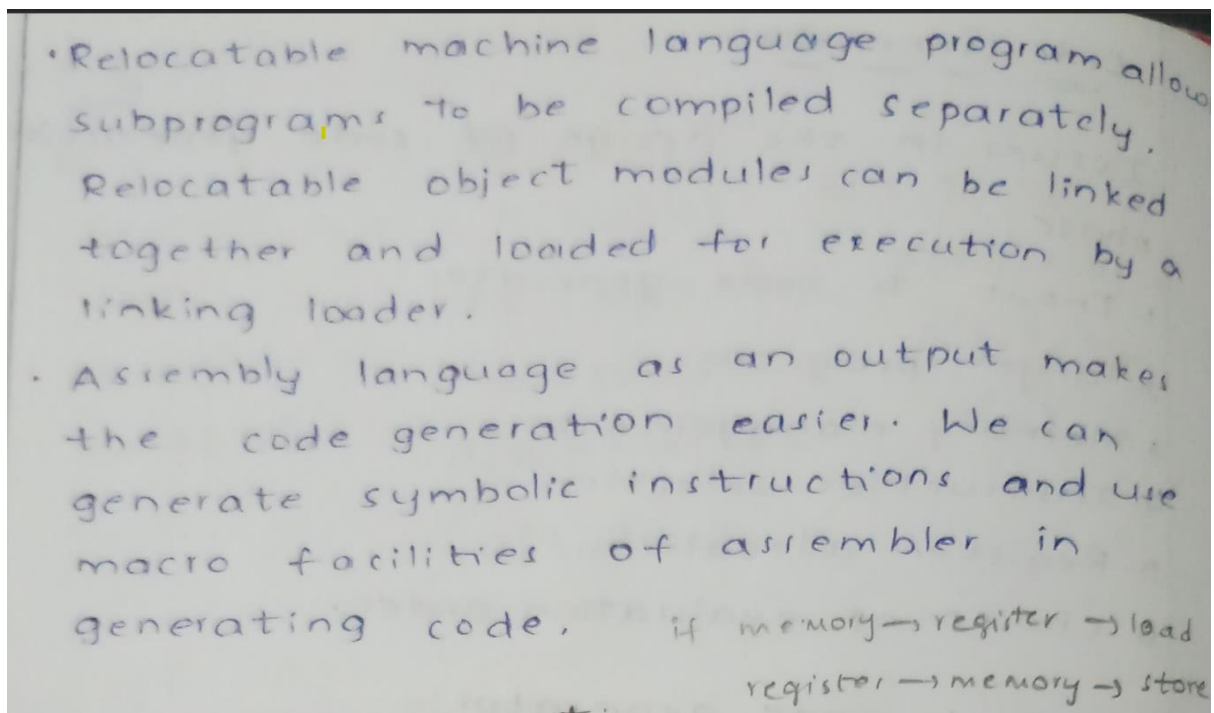 • Relocatable machine language program allows
subprograms to be compiled separately.
Relocatable object modules can be linked
together and loaded for execution by a
linking loader.
• Assembly language as an output makes
the code generation easier. We can
generate symbolic instructions and use
macro facilities of assembler in
generating code.
if memory → register → load
register → memory → store